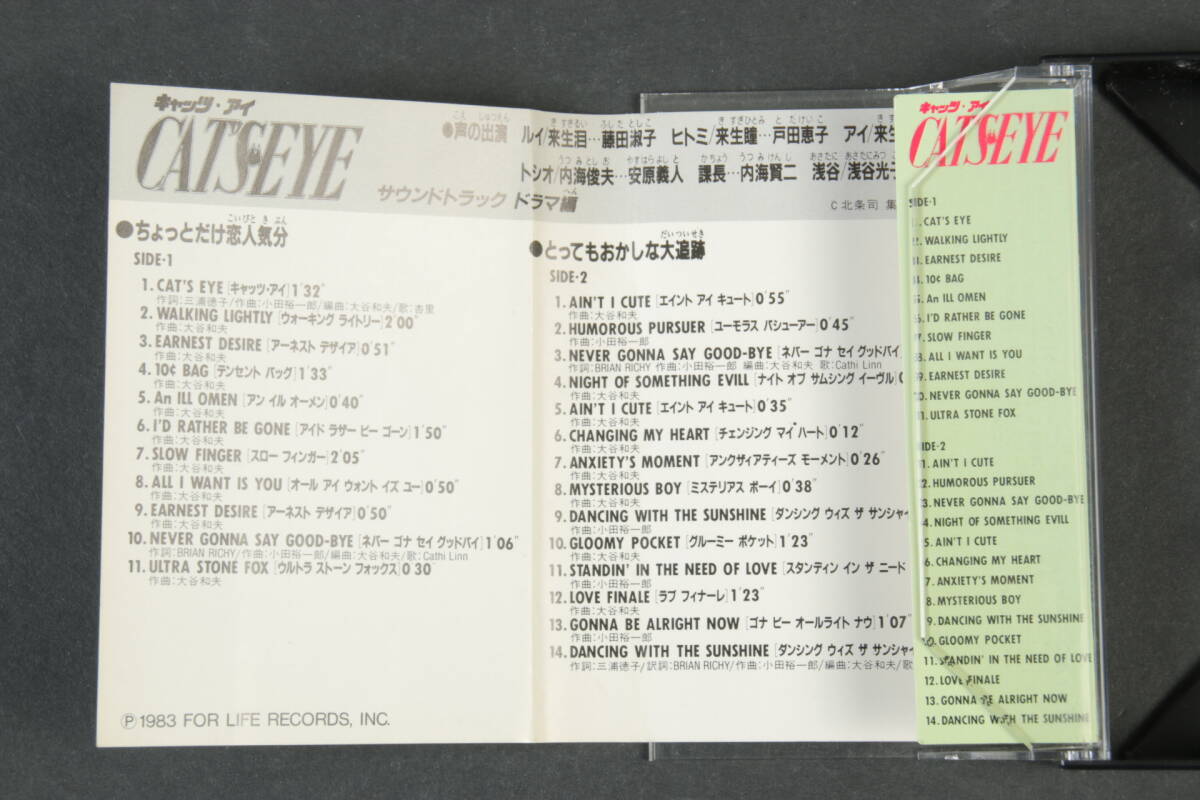 キャッツ・アイ
CAT'S・EYE
サウンドトラック ドラマ編
こえ しゅつえん
●声の出演
きすぎるい ふじた としこ きすぎひとみ と だ けい こ
ルイ/来生泪…藤田淑子 ヒトミ/来生瞳…戸田恵子 アイ/来生
うつ み とし お やすはら よし と か ちょう うつ み けん じ あさたに あさたにみつ こ
トシオ/内海俊夫…安原義人 課長…内海賢二 浅谷/浅谷光子
C 北条司 集
こいびと き ぶん
●ちょっとだけ恋人気分
SIDE・1
1. CAT'S EYE [キャッツ・アイ] 1′32″
作詞:三浦徳子/作曲:小田裕一郎/編曲:大谷和夫/歌:杏里
2. WALKING LIGHTLY [ウォーキング ライトリー] 2′00″
作曲:大谷和夫
3. EARNEST DESIRE [アーネスト デザイア] 0′51″
作曲:大谷和夫
4. 10¢ BAG [テンセント バッグ] 1′33″
作曲:大谷和夫
5. An ILL OMEN [アン イル オーメン] 0′40″
作曲:大谷和夫
6. I'D RATHER BE GONE [アイド ラザー ビー ゴーン] 1′50″
作曲:大谷和夫
7. SLOW FINGER [スロー フィンガー] 2′05″
作曲:大谷和夫
8. ALL I WANT IS YOU [オール アイ ウォント イズ ユー] 0′50″
作曲:大谷和夫
9. EARNEST DESIRE [アーネスト デザイア] 0′50″
作曲:大谷和夫
10. NEVER GONNA SAY GOOD-BYE [ネバー ゴナ セイ グッドバイ] 1′06″
作詞:BRIAN RICHY/作曲:小田裕一郎/編曲:大谷和夫/歌:Cathi Linn
11. ULTRA STONE FOX [ウルトラ ストーン フォックス] 0′30″
作曲:大谷和夫
Ⓟ 1983 FOR LIFE RECORDS, INC.
だいついせき
●とってもおかしな大追跡
SIDE・2
1. AIN'T I CUTE [エイント アイ キュート] 0′55″
作曲:大谷和夫
2. HUMOROUS PURSUER [ユーモラス パシューアー] 0′45″
作曲:小田裕一郎
3. NEVER GONNA SAY GOOD-BYE [ネバー ゴナ セイ グッドバイ]
作詞:BRIAN RICHY 作曲:小田裕一郎 編曲:大谷和夫 歌:Cathi Linn
4. NIGHT OF SOMETHING EVILL [ナイト オブ サムシング イーヴル]
作曲:大谷和夫
5. AIN'T I CUTE [エイント アイ キュート] 0′35″
作曲:大谷和夫
6. CHANGING MY HEART [チェンジング マイ ハート] 0′12″
作曲:大谷和夫
7. ANXIETY'S MOMENT [アンクザィアティーズ モーメント] 0′26″
作曲:大谷和夫
8. MYSTERIOUS BOY [ミステリアス ボーイ] 0′38″
作曲:大谷和夫
9. DANCING WITH THE SUNSHINE [ダンシング ウィズ ザ サンシャイ
作曲:小田裕一郎
10. GLOOMY POCKET [グルーミー ポケット] 1′23″
作曲:大谷和夫
11. STANDIN' IN THE NEED OF LOVE [スタンディン イン ザ ニード
作曲:小田裕一郎
12. LOVE FINALE [ラブ フィナーレ] 1′23″
作曲:大谷和夫
13. GONNA BE ALRIGHT NOW [ゴナ ビー オールライト ナウ] 1′07″
作曲:小田裕一郎
14. DANCING WITH THE SUNSHINE [ダンシング ウィズ ザ サンシャイ
作詞:三浦徳子/訳詞:BRIAN RICHY/作曲:小田裕一郎/編曲:大谷和夫/歌
キャッツ・アイ
CAT'S・EYE
SIDE・1
1. CAT'S EYE
2. WALKING LIGHTLY
3. EARNEST DESIRE
4. 10¢ BAG
5. An ILL OMEN
6. I'D RATHER BE GONE
7. SLOW FINGER
8. ALL I WANT IS YOU
9. EARNEST DESIRE
10. NEVER GONNA SAY GOOD-BYE
11. ULTRA STONE FOX
SIDE・2
1. AIN'T I CUTE
2. HUMOROUS PURSUER
3. NEVER GONNA SAY GOOD-BYE
4. NIGHT OF SOMETHING EVILL
5. AIN'T I CUTE
6. CHANGING MY HEART
7. ANXIETY'S MOMENT
8. MYSTERIOUS BOY
9. DANCING WITH THE SUNSHINE
10. GLOOMY POCKET
11. STANDIN' IN THE NEED OF LOVE
12. LOVE FINALE
13. GONNA BE ALRIGHT NOW
14. DANCING WITH THE SUNSHINE